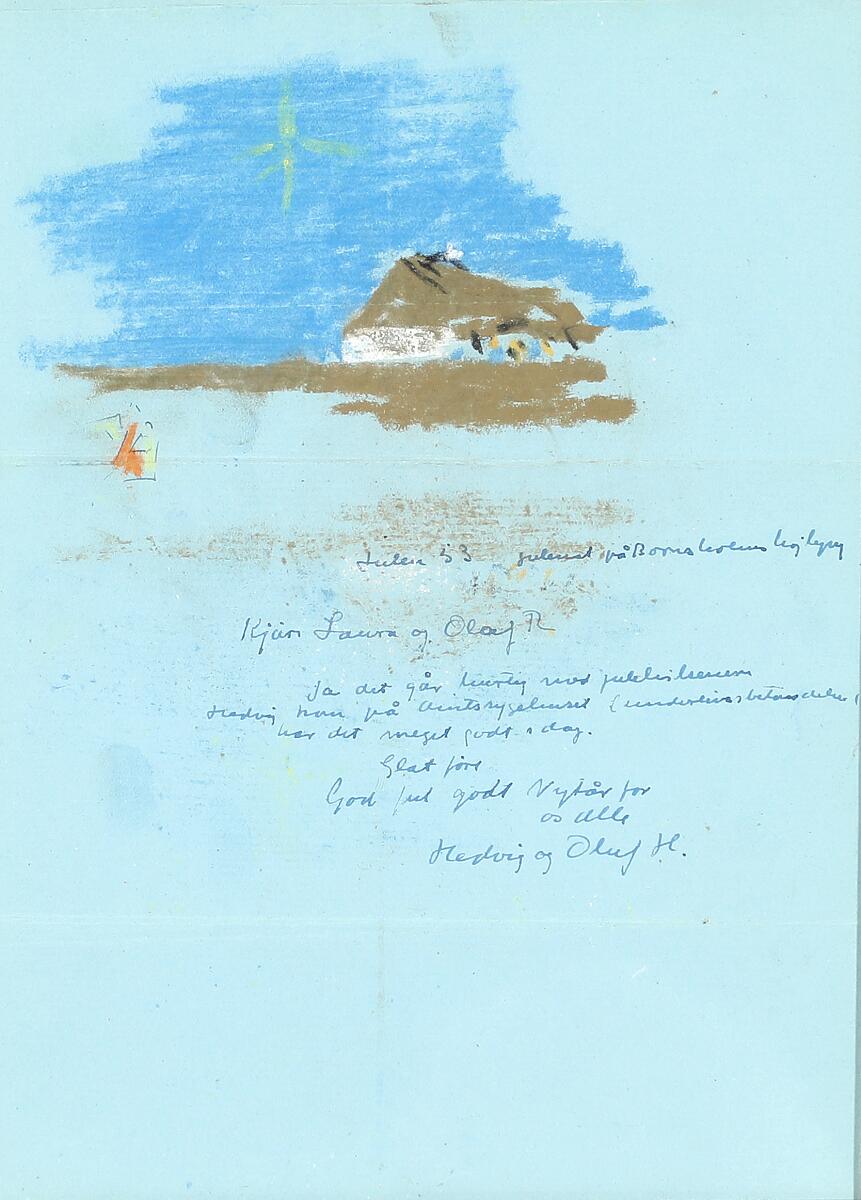 Julen 53 julenat på Bornsholms højlyng
Kjære Laura og Olaf R
Ja det går hurtig med
Hedvig kom på Amtssygehuset (underlivsbetændelse)
har det meget godt i dag.
Glat føre
God jul godt Nytår for
os alle
Hedvig og Oluf H.